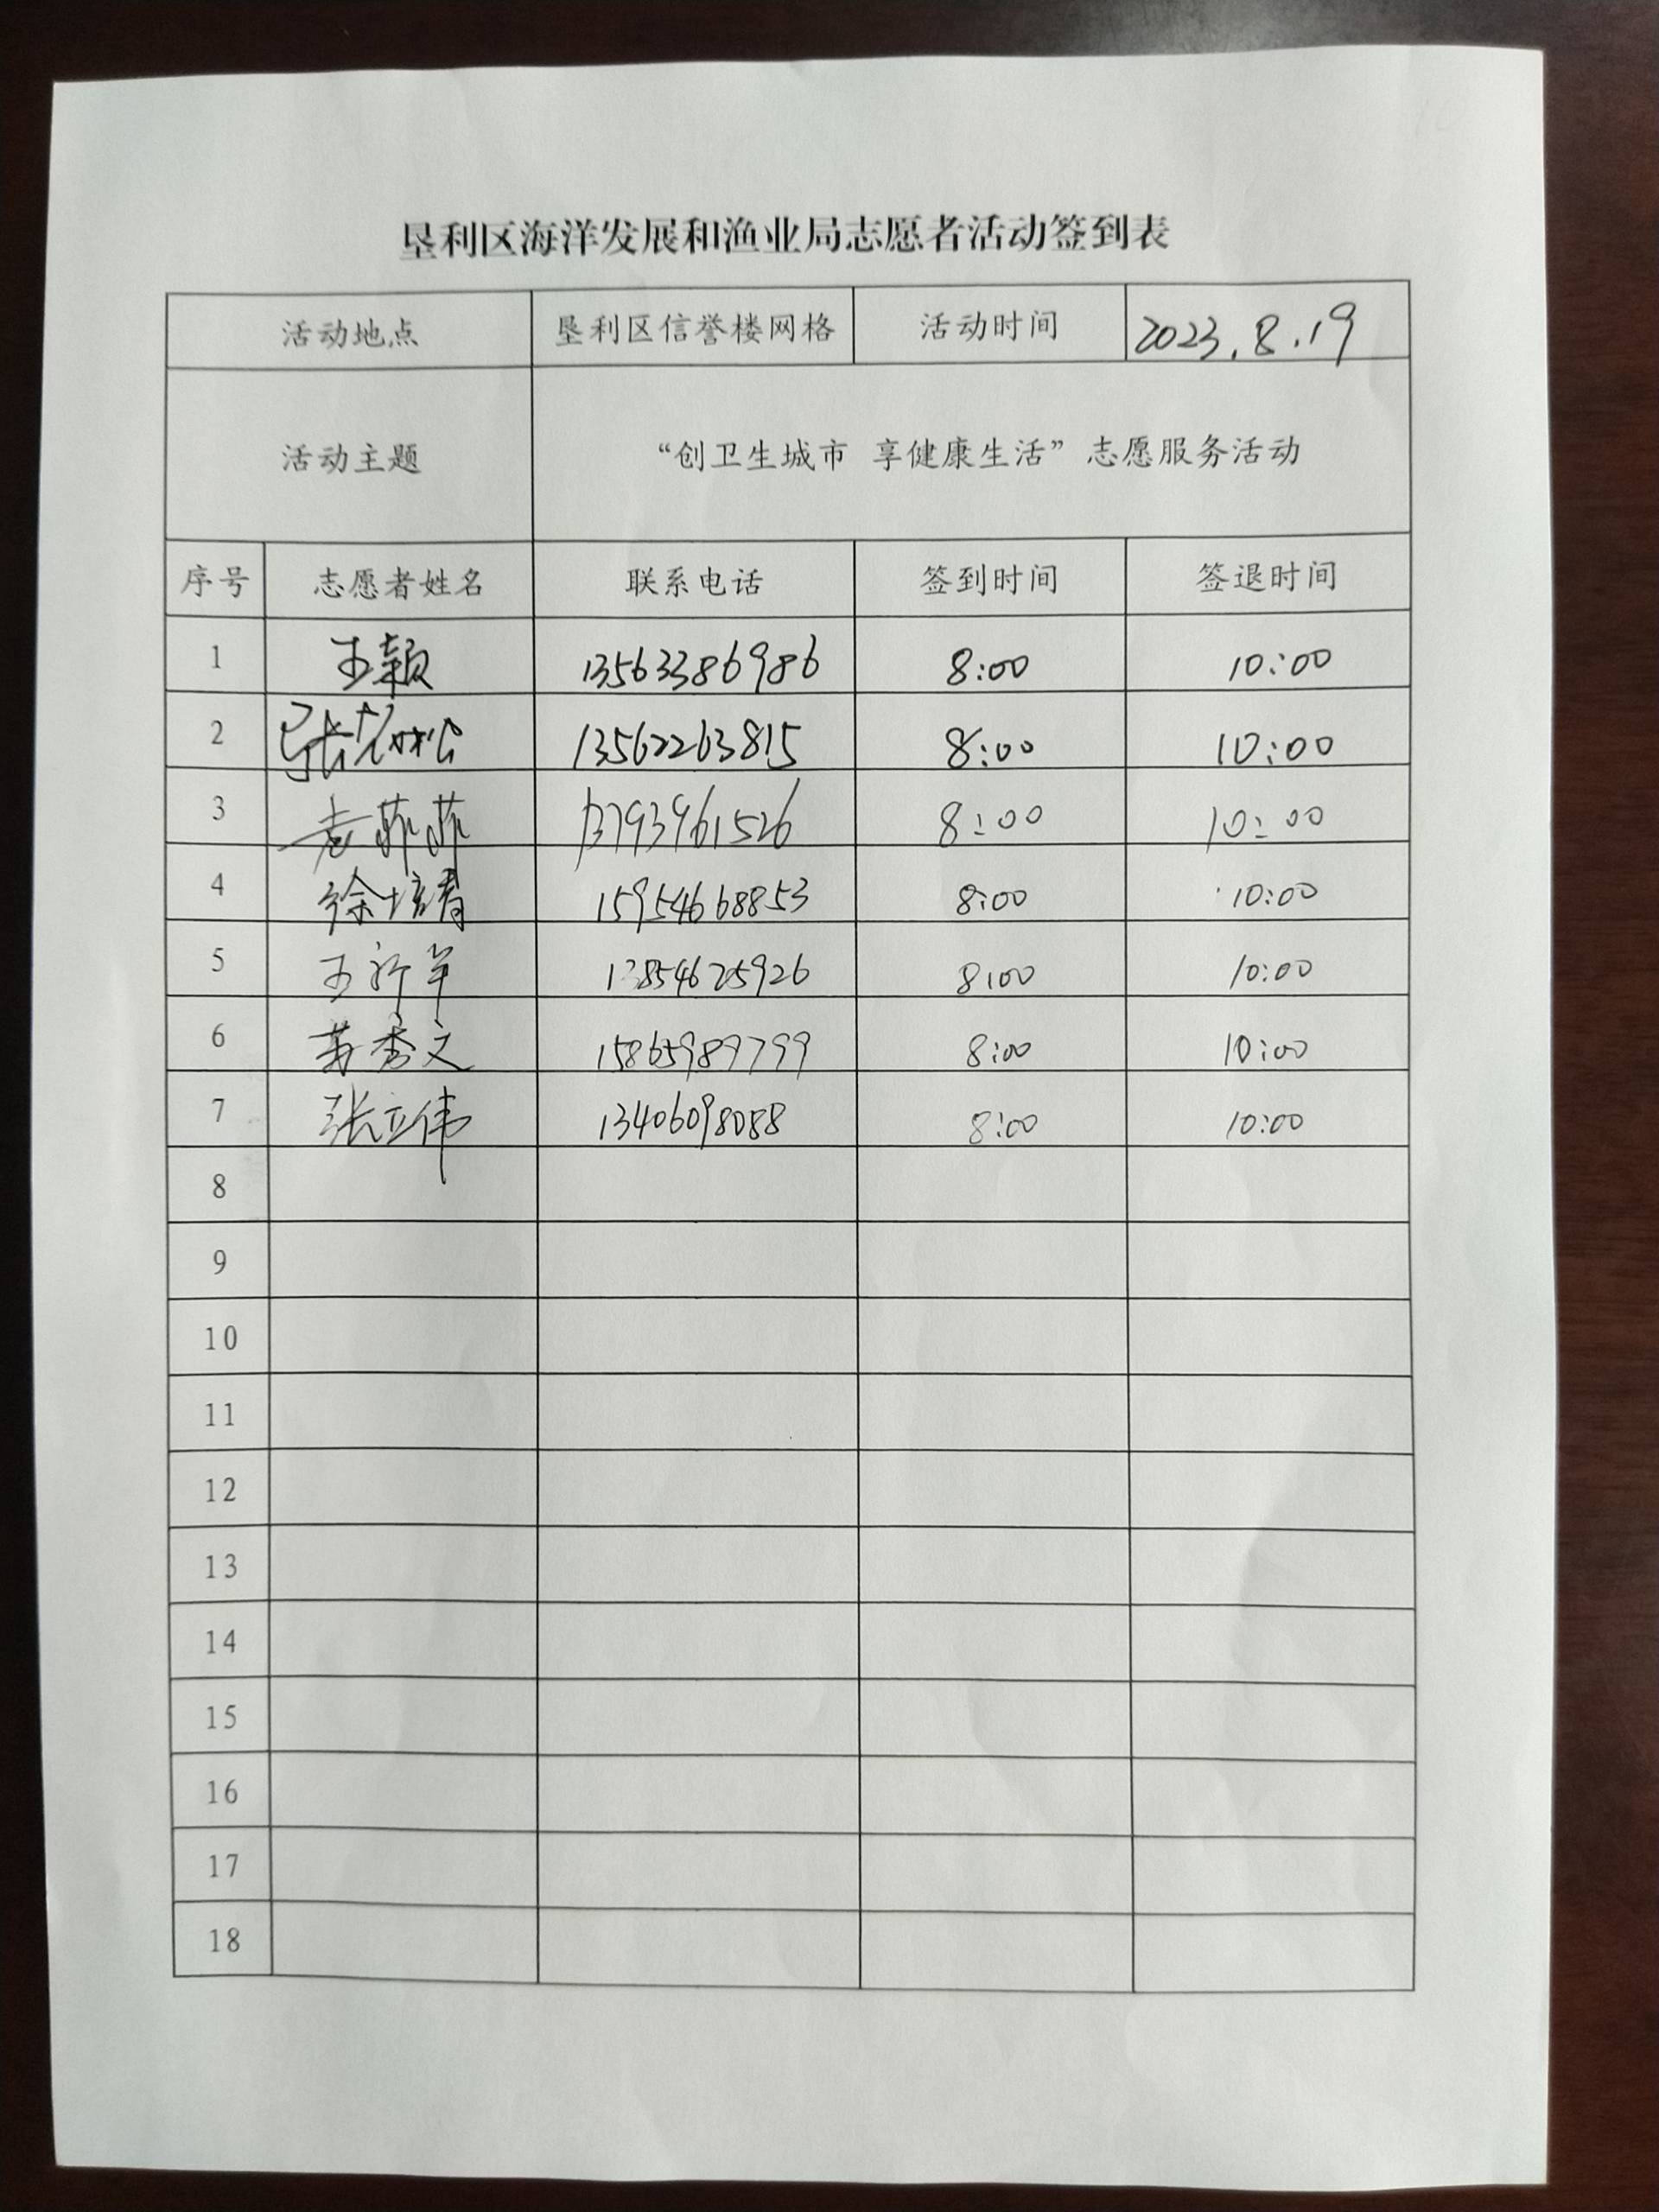 垦利区海洋发展和渔业局志愿者活动签到表
活动地点 垦利区信誉楼网格 活动时间 2023.8.19
活动主题 “创卫生城市 享健康生活”志愿服务活动
序号 志愿者姓名 联系电话 签到时间 签退时间
1 王颖 13563386986 8:00 10:00
2 13562263815 8:00 10:00
3 菲菲 13793961526 8:00 10:00
4 徐培青 15954668853 8:00 10:00
5 王 13854625926 8:00 10:00
6 苏秀文 15865989799 8:00 10:00
7 张立伟 13406098088 8:00 10:00
8
9
10
11
12
13
14
15
16
17
18